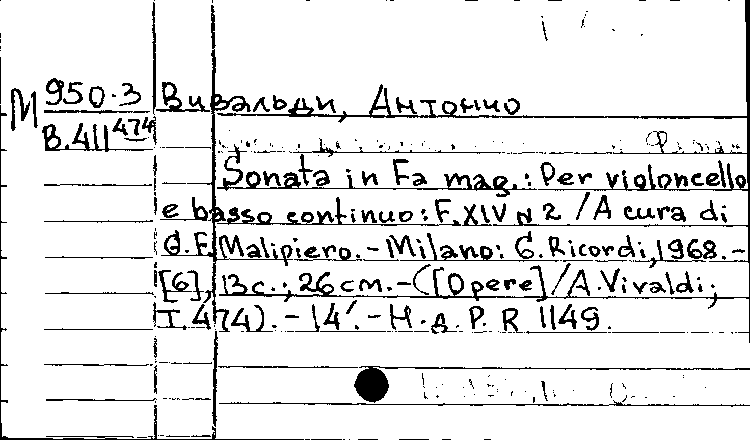 М 950-3 Вивальди, Антонио
В.411 474
Sonata in Fa mag.: Per violoncello
e basso continuo: F.XIV N 2 / A cura di
G.F. Malipiero.-Milano: G.Ricordi,1968.-
[6], 13 с.; 26 см.-([Opere]/A.Vivaldi;
T.474).-14'.-Н.д. P. R. 1149.